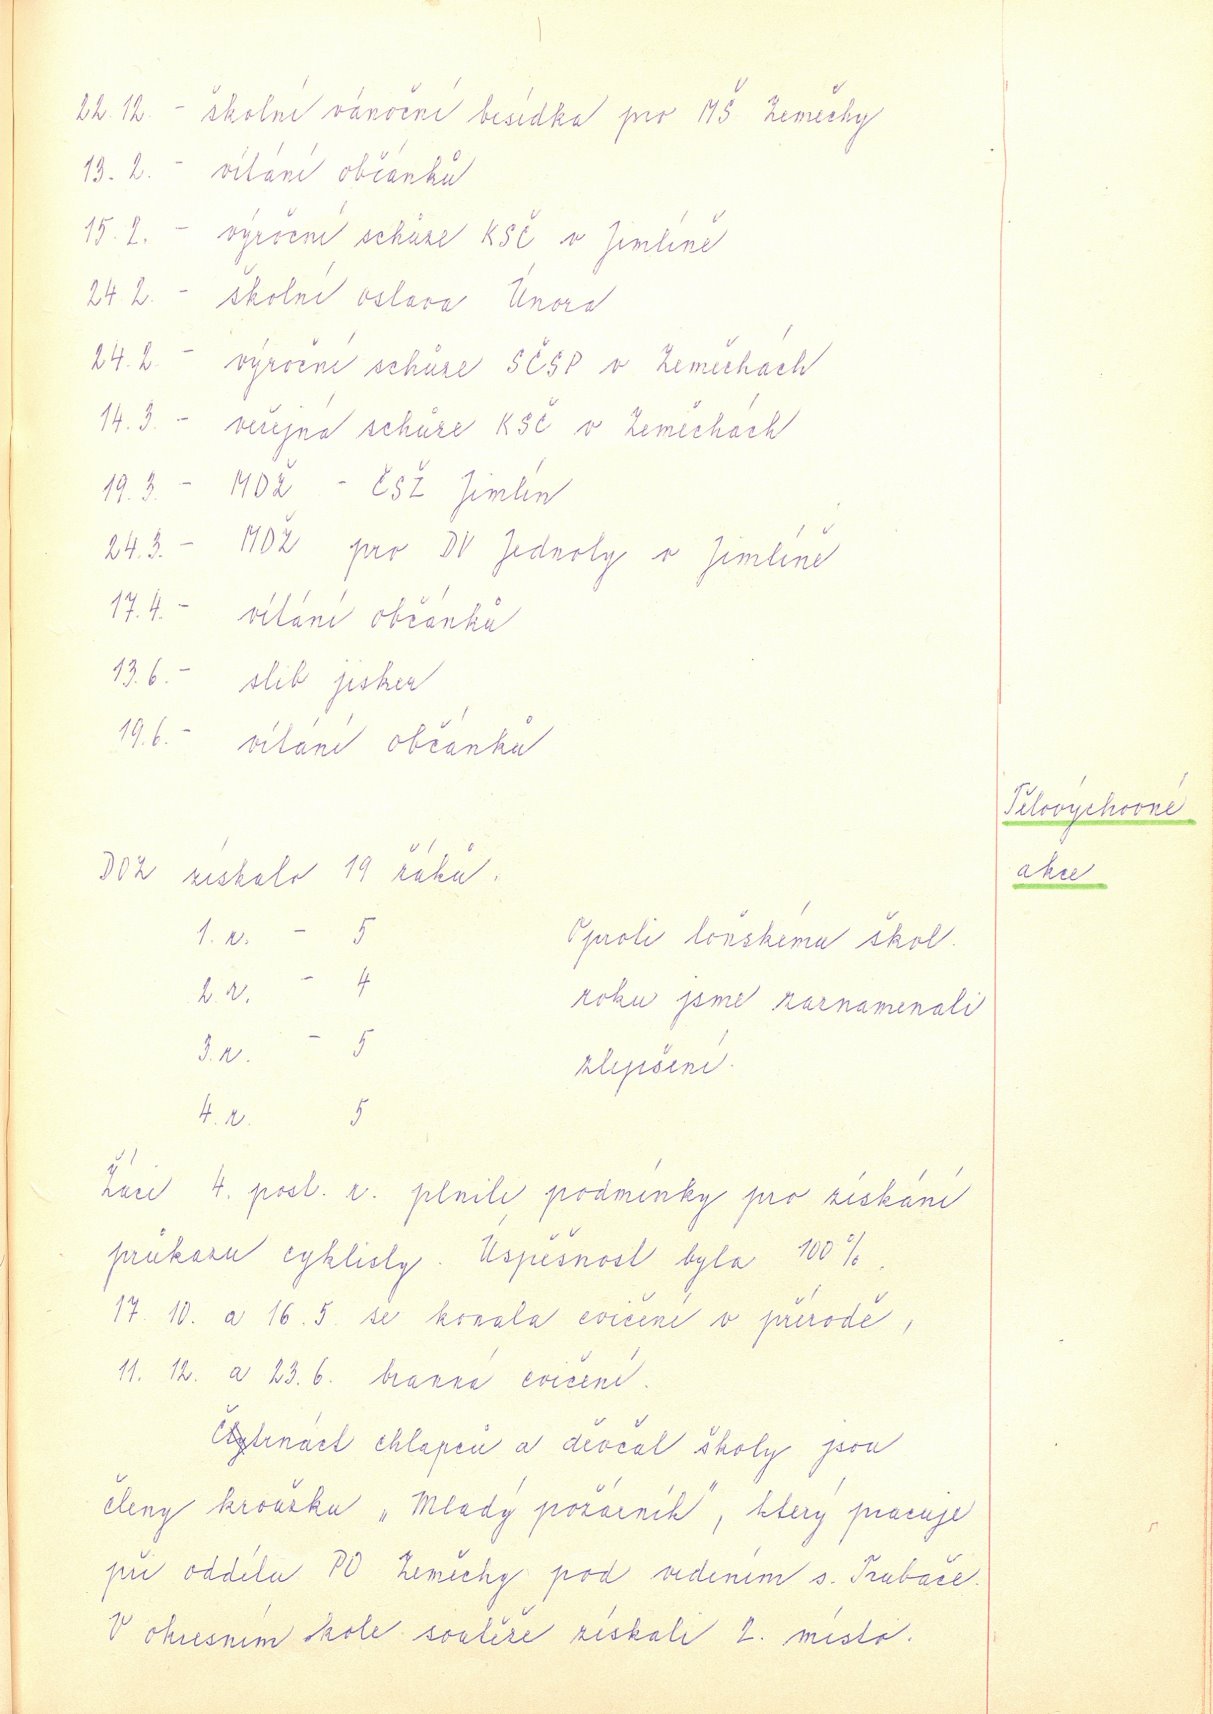 22.12. - školní vánoční besídka pro MŠ Zeměchy
13. 2. - vítání občánků
15. 2. - výroční schůze KSČ v Jimlíně
24. 2. - školní oslava Února
24. 2. - výroční schůze SČSP v Zeměchách
14. 3. - veřejná schůze KSČ v Zeměchách
19. 3. - MDŽ - ČSŽ Jimlín
24. 3. - MDŽ pro DV Jednoty v Jimlíně
17. 4. - vítání občánků
13. 6. - slib jisker
19. 6. - vítání občánků
Tělovýchovné
akce
DOZ získalo 19 žáků.
1. r. - 5
2. r. - 4
3. r. - 5
4. r. 5
Oproti loňskému škol.
roku jsme zaznamenali
zlepšení.
Žáci 4. post. r. plnili podmínky pro získání
průkazu cyklisty. Úspěšnost byla 100 %.
17. 10. a 16. 5. se konala cvičení v přírodě,
11. 12. a 23. 6. branná cvičení.
Čtrnáct chlapců a děvčat školy jsou
členy kroužku „Mladý požárník", který pracuje
při oddílu PO Zeměchy pod vedením s. Trubače.
V okresním kole soutěže získali 2. místo.